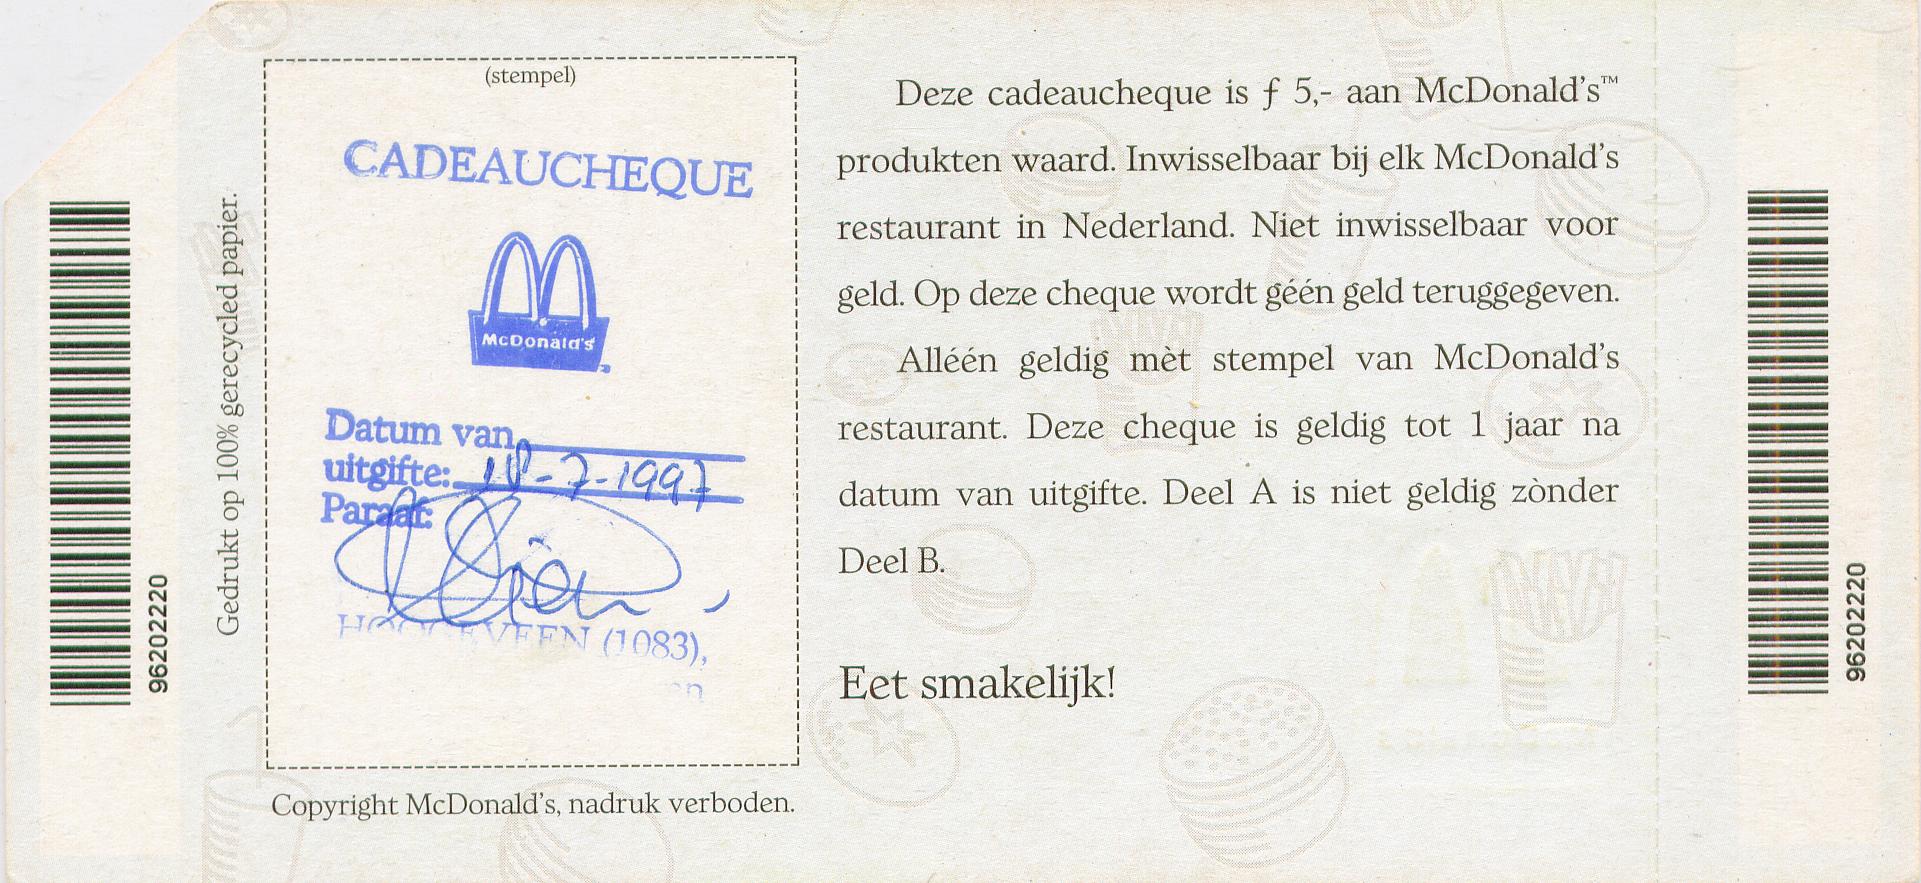 (stempel)
CADEAUCHEQUE
McDonald's
Datum van
uitgifte: 18-7-1997
Paraaf:
HOOGEVEEN (1083),
Gedrukt op 100% gerecycled papier.
96202220
Copyright McDonald's, nadruk verboden.
Deze cadeaucheque is ƒ 5,- aan McDonald's™
produkten waard. Inwisselbaar bij elk McDonald's
restaurant in Nederland. Niet inwisselbaar voor
geld. Op deze cheque wordt géén geld teruggegeven.
Alléén geldig mèt stempel van McDonald's
restaurant. Deze cheque is geldig tot 1 jaar na
datum van uitgifte. Deel A is niet geldig zònder
Deel B.
Eet smakelijk!
96202220